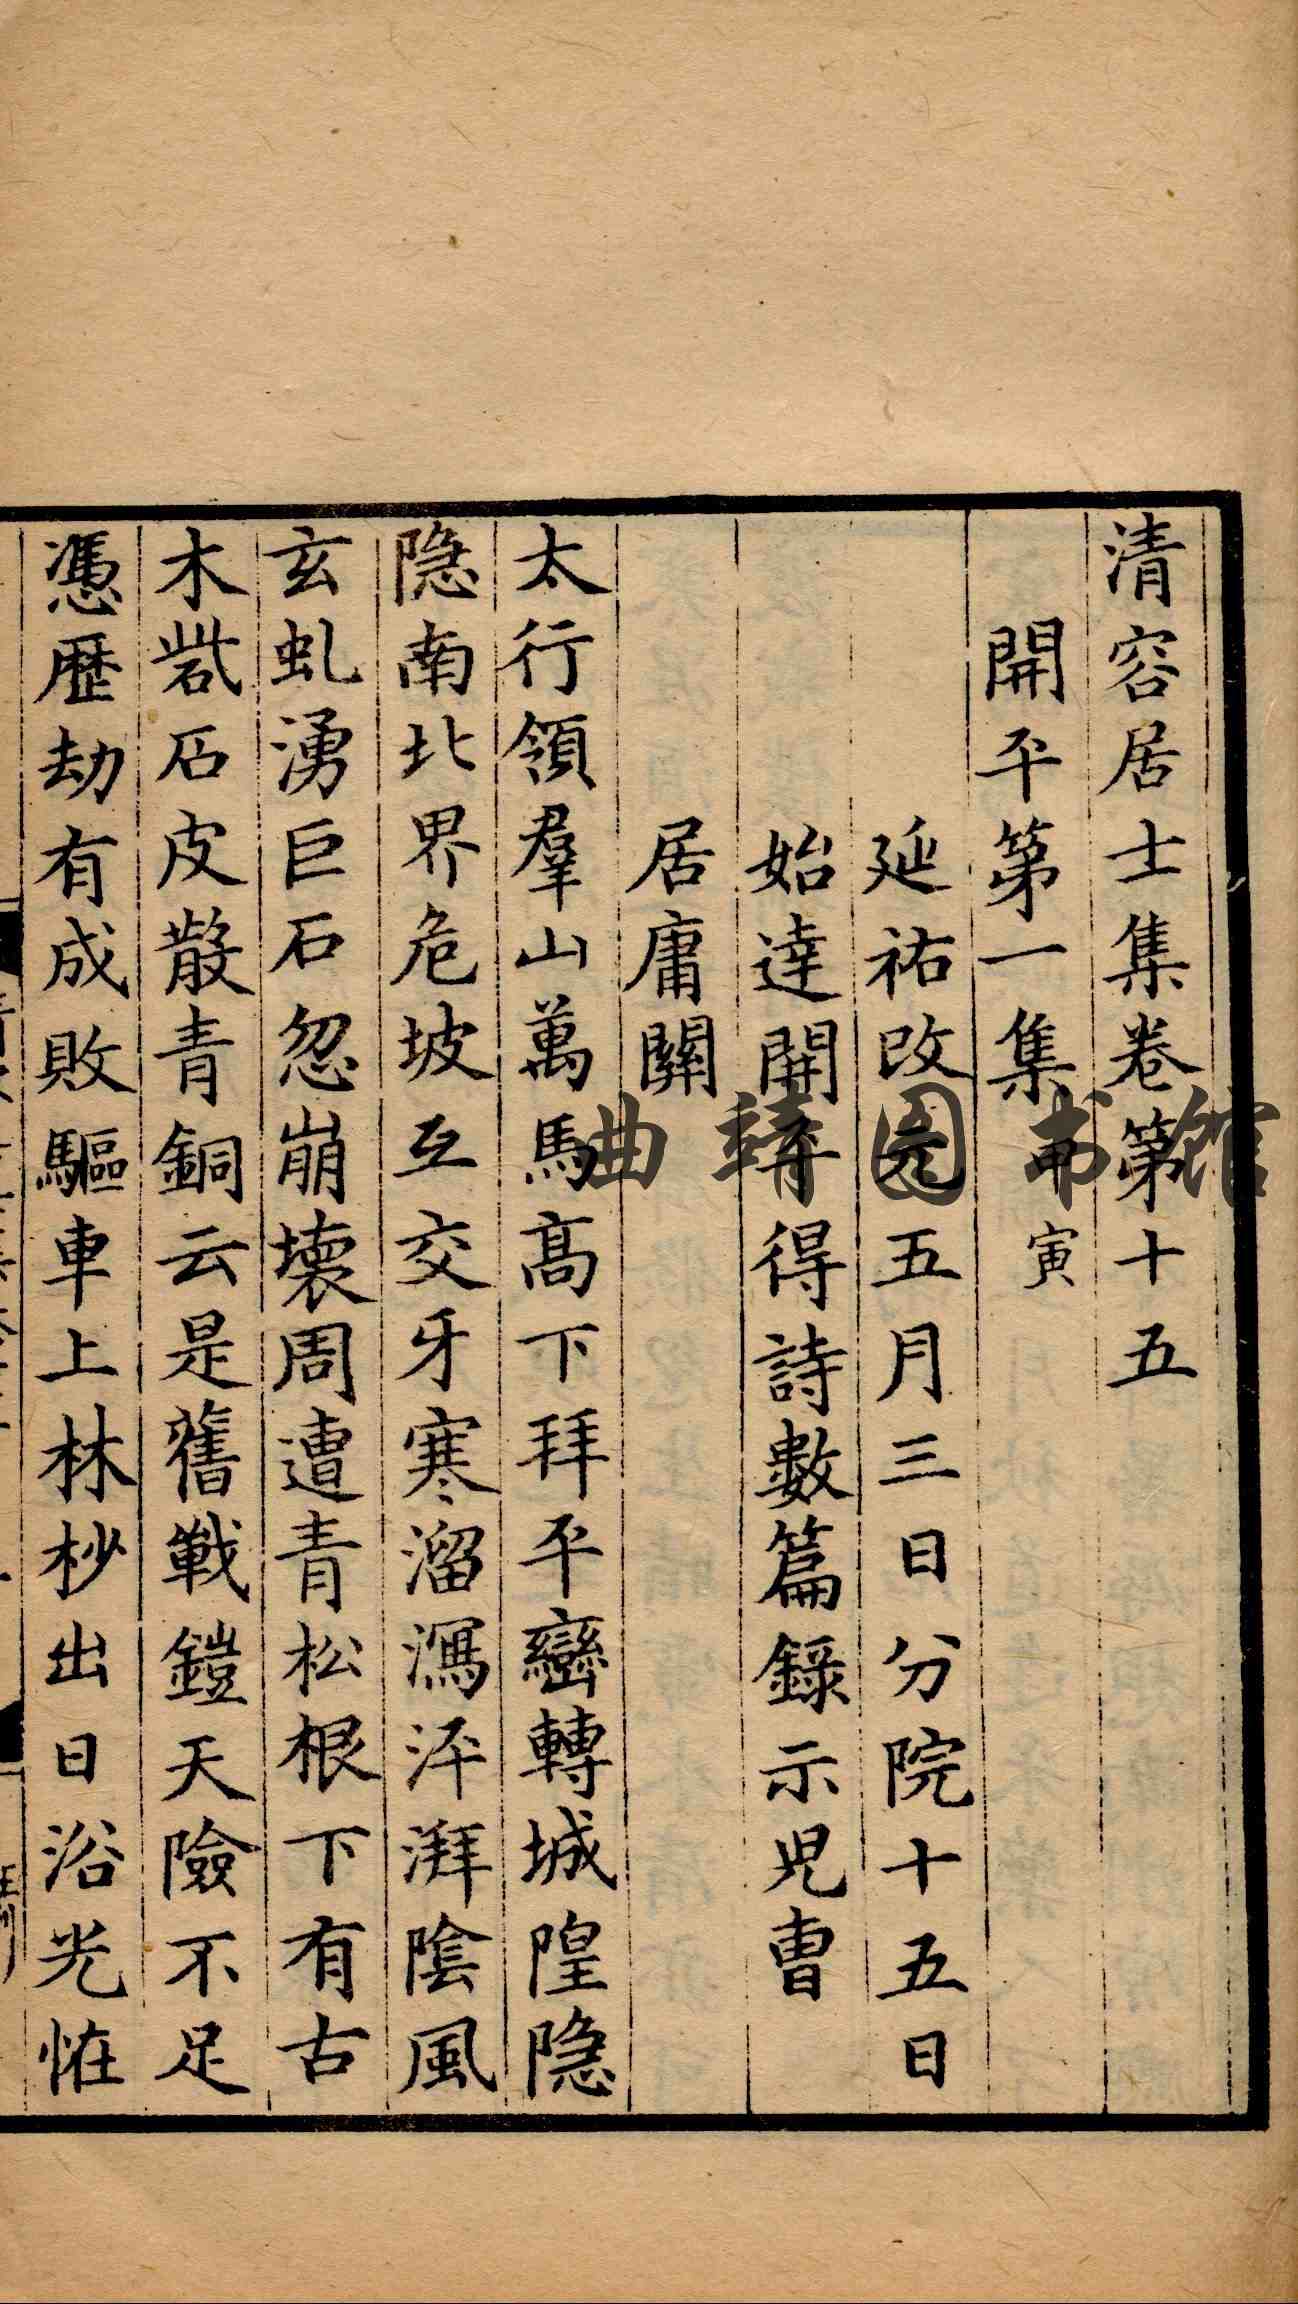 清容居士集卷第十五
開平第一集甲寅
延祐改元五月三日分院十五日
始達開平得詩數篇錄示児曹
居庸關
太行領羣山萬馬高下拜平巒轉城隍隐
隐南北界危坡互交牙寒溜瀉泙湃陰風
玄虬湧巨石忽崩壞周遭青松根下有古
木砦石皮散青銅云是舊戰鎧天險不足
憑歷劫有成敗驅車上林杪出日浴光恠
曲靖图书馆